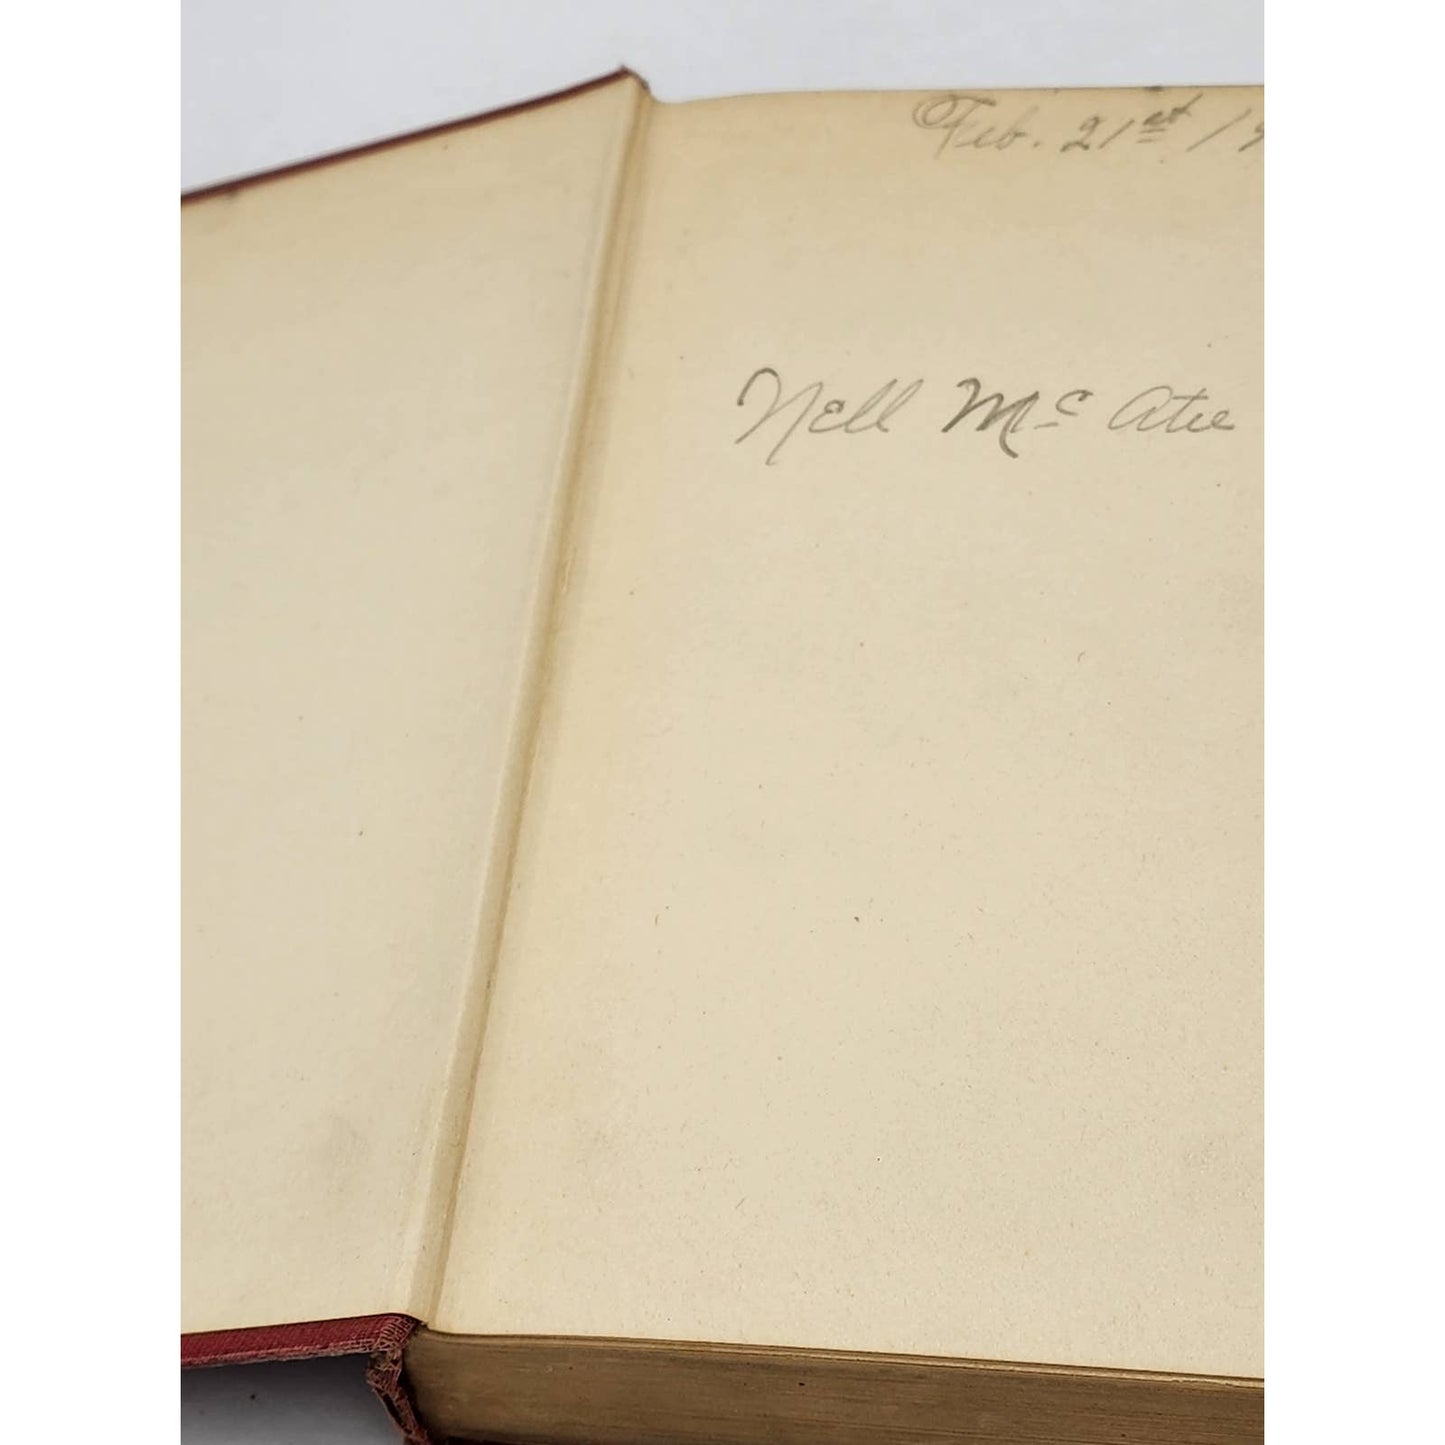 Feb. 21st / 
Nell Mc Atee